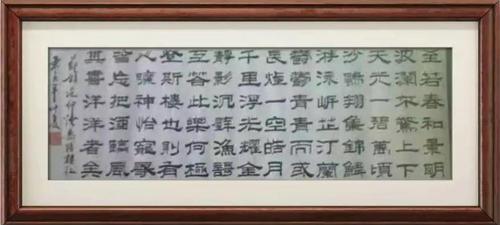 至若春和景明
波瀾不驚上下
天光一碧萬頃
沙鷗翔集錦鱗
游泳岸芷汀蘭
鬱鬱青青而或
長煙一空皓月
千里浮光耀金
靜影沉璧漁謌
互答此樂何極
登斯樓也則有
心曠神怡寵辱
皆忘把酒臨風
其喜洋洋者矣
節錄范仲淹岳陽樓記